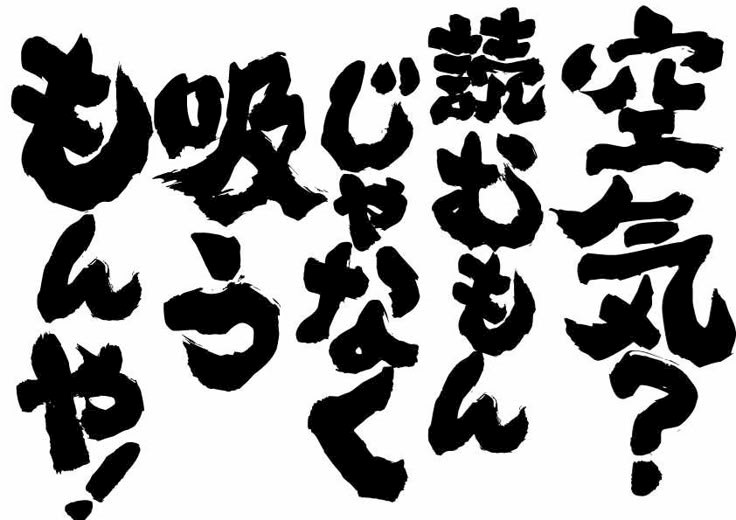 空気?
読むもん
じゃなく
吸う
もんや!